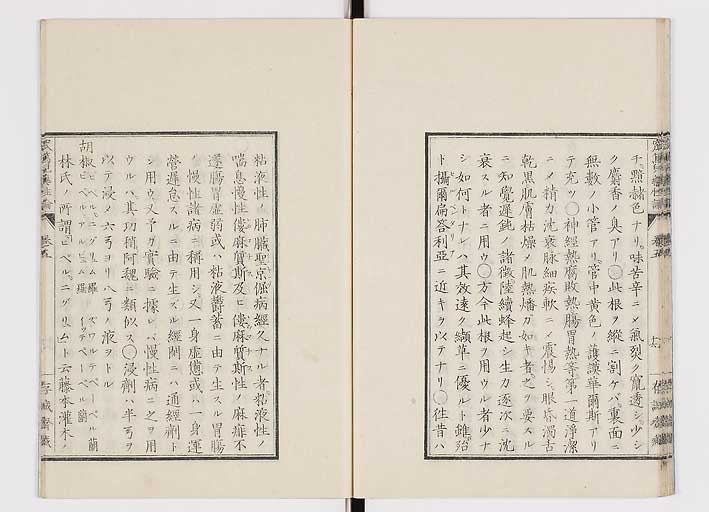 チ黯赭色ナリ味苦辛ニメ氣烈ク竄透シ少シ
ク麝香ノ臭アリ◯此根ヲ縱ニ割ケバ裏面ニ
無數ノ小管アリ管中黄色ノ護謨華爾斯アリ
テ充ツ◯神經熱腐敗熱腸胃熱等第一道淨潔
ニメ精力沈衰脉細疾軟ニメ震惕シ眼昏濁舌
乾黒肌膚枯燥メ肌熱燔ガ如キ者之ヲ要スル
ニ知覺遲鈍ノ諸徴陸續蜂起シ生力逐次ニ沈
衰スル者ニ用ウ◯方今此根ヲ用ウル者少ナ
シ如何トナレハ其效速ク纈草ニ優ルト雖殆
ト攝爾扁荅利亞ニ近キヲ以テナリ◯徃昔ハ
粘液性ノ肺臓聖京倔病經久ナル者粘液性ノ
喘息慢性僂麻質斯及ヒ僂麻質斯性ノ麻痺不
遂腸胃虚弱或ハ粘液欝蓄ニ由テ生スル胃腸
ノ慢性諸病ニ稱用シ又一身虚憊或ハ一身運
營遲怠スルニ由テ生スル經閉ニハ通經劑ト
シ用ウ又予ガ實驗ニ據レバ慢性病ニ之ヲ用
ウルハ其功稍阿魏ニ類似ス◯浸劑ハ半弓ヲ
以テ浸メ六弓ヨリ八弓ノ液ヲトル
胡椒 ピペル、ニグリュム 羅 ズワルテペーペル 蘭
ピペルアルビュム 羅 イッテペーペル 蘭
林氏ノ所謂ピペル、ニグリュムト云藤本灌木ノ